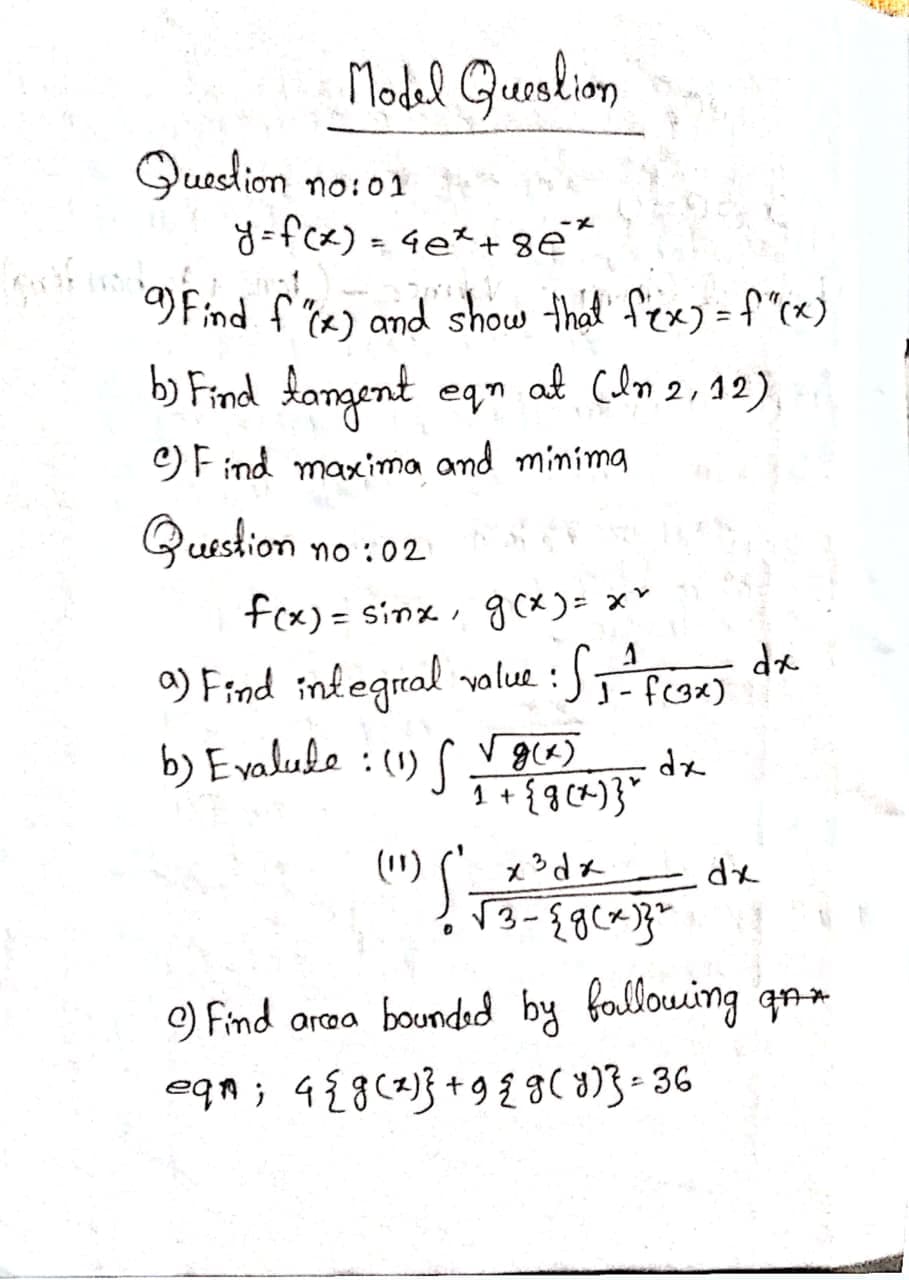 Model Question
Question no:01
y=f(x) = 4eˣ + 8e⁻ˣ
a) Find f"(x) and show that f(x) = f"(x)
b) Find tangent eqn at (ln 2, 12)
c) Find maxima and minima
Question no:02
f(x) = sinx, g(x) = x²
a) Find integral value : ∫ 1/(1 - f(3x)) dx
b) Evalute : (1) ∫ √g(x)/(1 + {g(x)}²) dx
(11) ∫₀¹ x³dx/√3-{g(x)}² dx
c) Find area bounded by following
eqn; 4{g(x)}+9{g(y)}=36